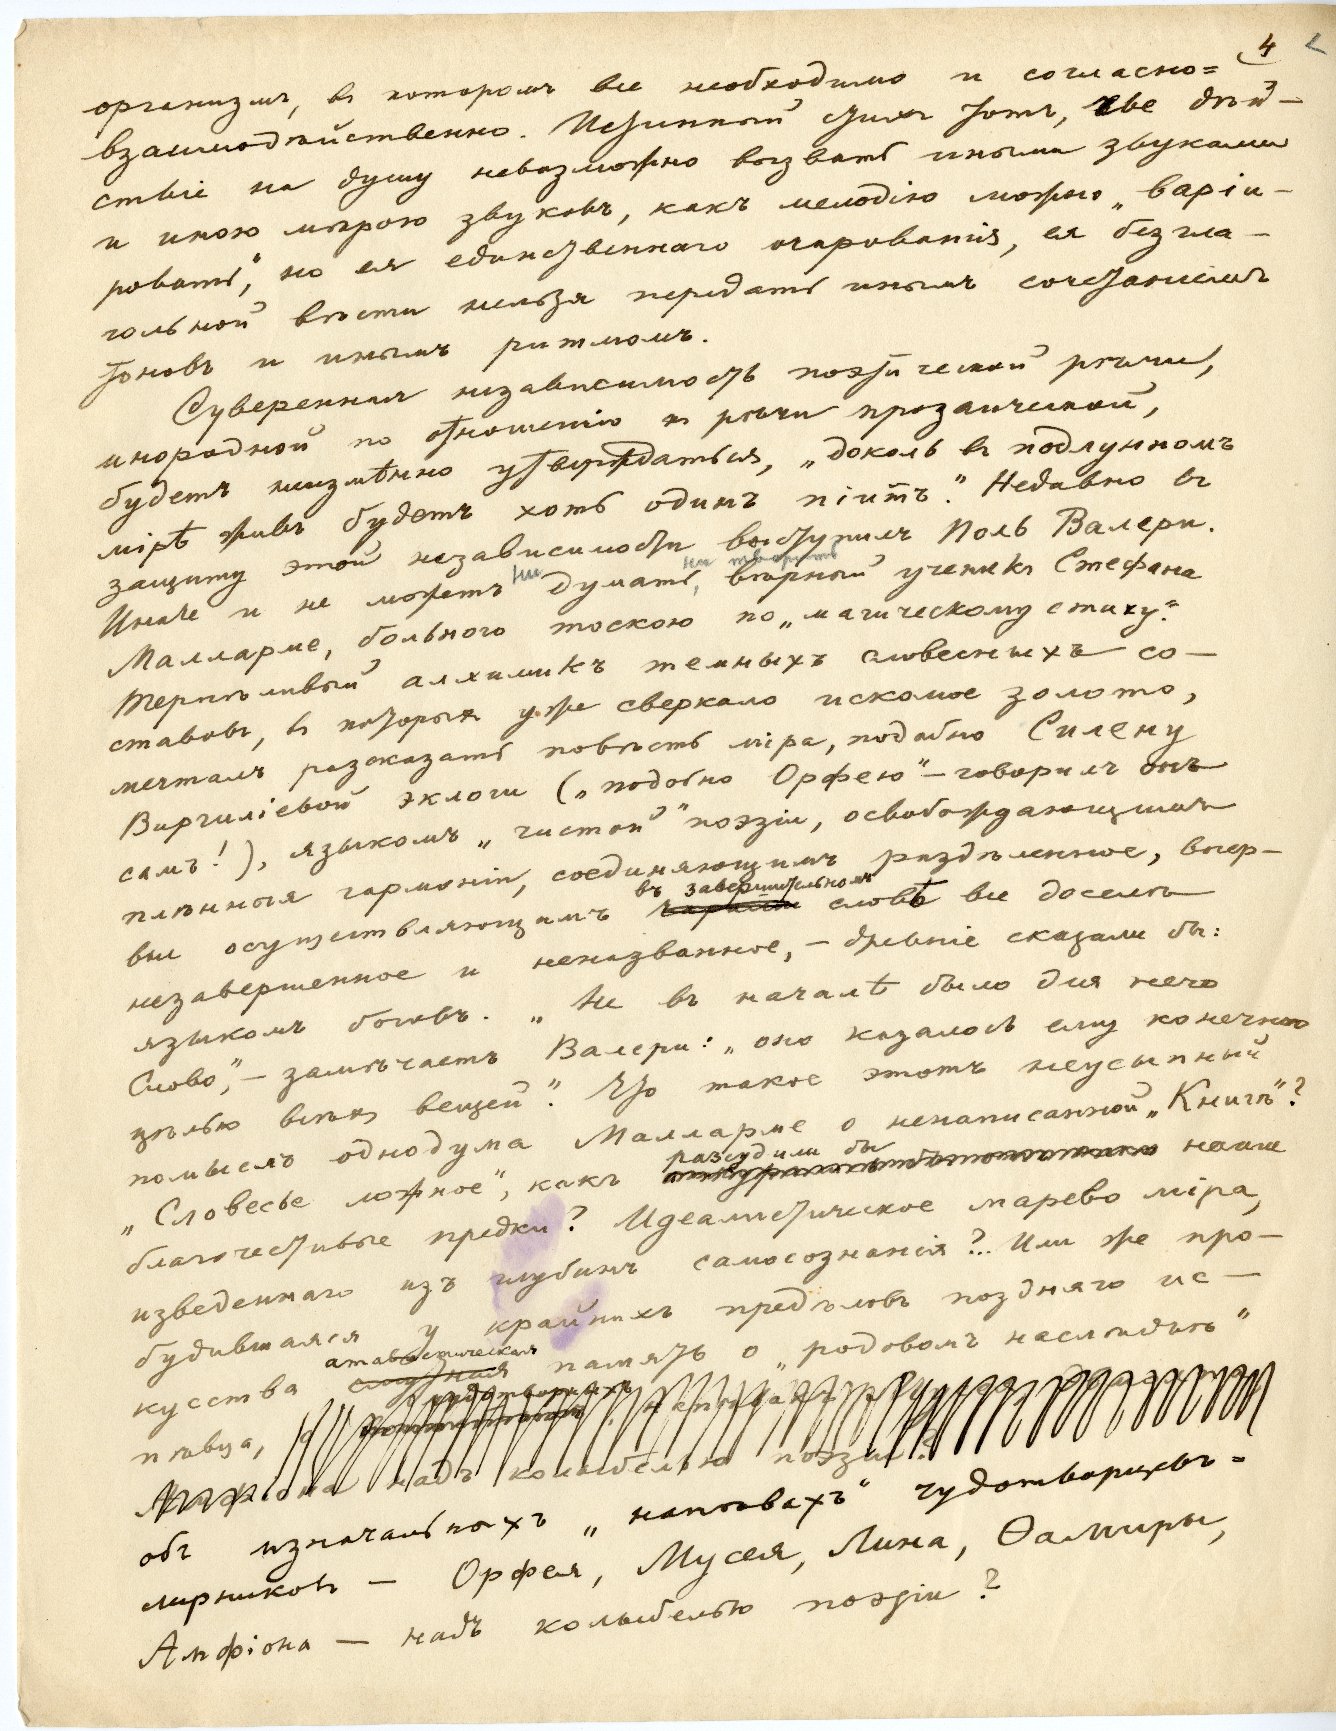 4
организмъ, въ которомъ все необходимо и согласно=
взаимодѣйственно. Истинный стихъ тотъ, чье дѣй-
ствіе на душу невозможно вызвать иными звуками
и иною мѣрою звуковъ, какъ мелодію можно „варіи-
ровать", но ея единственнаго очарованія, ея безгла-
гольной вѣсти нельзя передать инымъ сочетаніемъ
тоновъ и инымъ ритмомъ.
Суверенная независимость поэтической рѣчи,
инородной по отношенію къ рѣчи прозаической,
будетъ неизмѣнно утверждаться, „доколь въ подлунномъ
мірѣ живъ будетъ хоть одинъ піитъ." Недавно въ
защиту этой независимости выступилъ Поль Валери.
Иначе и не можетъ ни думать, ни творить вѣрный ученикъ Стефана
Малларме, больного тоскою по „магическому стиху".
Терпѣливый алхимикъ темныхъ словесныхъ со-
ставовъ, въ которыхъ уже сверкало искомое золото,
мечталъ разсказать повѣсть міра, подобно Силену
Виргиліевой эклоги („подобно Орфею" – говорилъ онъ
самъ!), языкомъ „чистой" поэзіи, освобождающимъ
плѣнныя гармоніи, соединяющимъ раздѣленное, впер-
вые осуществляющимъ въ завершительномъ словѣ все доселѣ
незавершенное и неназванное, – древніе сказали бы:
языкомъ боговъ. „Не въ началѣ было для него
Слово", – замѣчаетъ Валери: „оно казалось ему конечною
цѣлью всѣхъ вещей". Что такое этотъ неусыпный
помыселъ однодума Малларме о ненаписанной „Книгѣ"?
„Словесье ложное", какъ разсудили бы наши
благочестивые предки? Идеалистическое марево міра,
изведеннаго изъ глубинъ самосознанія?.. Или же про-
будившаяся у крайнихъ предѣловъ поздняго ис-
кусства атавистическая память о „родовомъ наслѣдьѣ"
пѣвца,
надъ колыбелью поэзіи?
объ изначальныхъ „напѣвахъ" чудотворцевъ=
лирниковъ – Орфея, Мусея, Лина, Ѳамиры,
Амфіона – надъ колыбелью поэзіи?